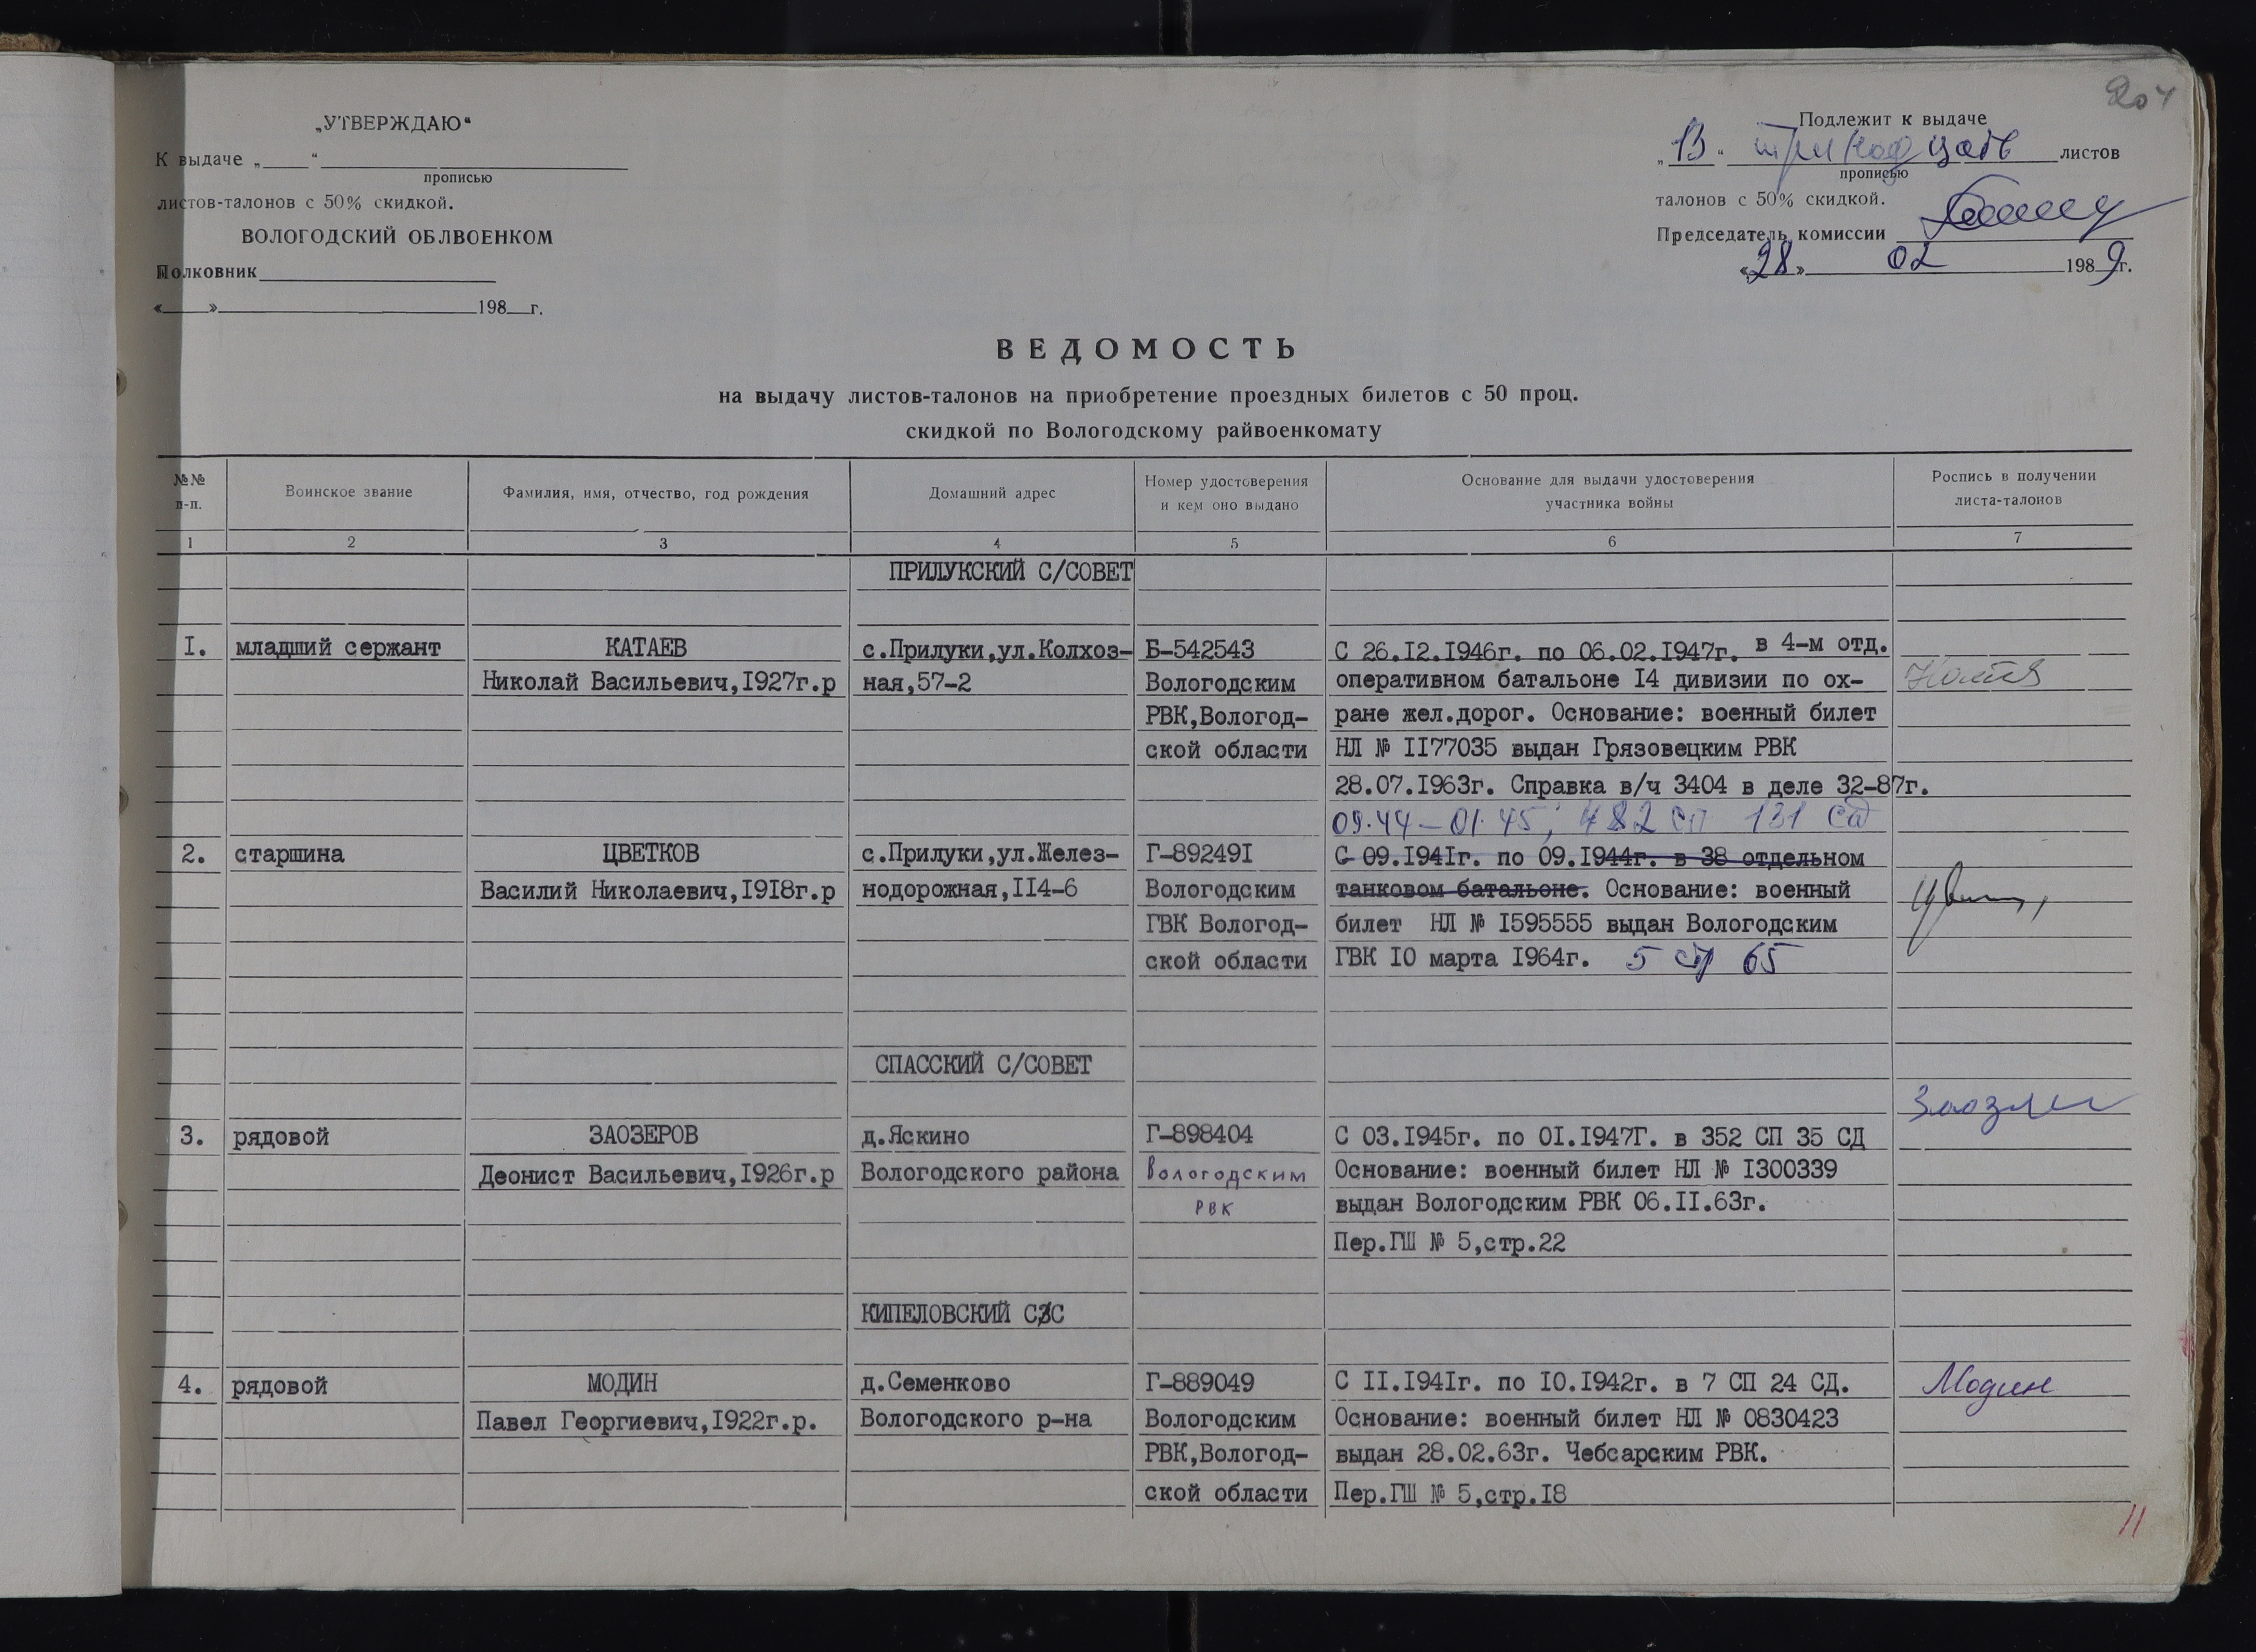 204
„УТВЕРЖДАЮ“
К выдаче „____“
прописью
листов-талонов с 50% скидкой.
ВОЛОГОДСКИЙ ОБЛВОЕНКОМ
Полковник
«____» 198__г.
Подлежит к выдаче
„13“ тринадцать листов
прописью
талонов с 50% скидкой.
Председатель комиссии
«28» 02 1989г.
ВЕДОМОСТЬ
на выдачу листов-талонов на приобретение проездных билетов с 50 проц.
скидкой по Вологодскому райвоенкомату
№№ п-п. Воинское звание Фамилия, имя, отчество, год рождения Домашний адрес Номер удостоверения и кем оно выдано Основание для выдачи удостоверения участника войны Роспись в получении листа-талонов
1 2 3 4 5 6 7
ПРИЛУКСКИЙ С/СОВЕТ
I. младший сержант КАТАЕВ с.Прилуки,ул.Колхоз- Б-542543 С 26.I2.I946г. по 06.02.I947г. в 4-м отд.
Николай Васильевич,I927г.р ная,57-2 Вологодским оперативном батальоне I4 дивизии по ох-
РВК,Вологод- ране жел.дорог. Основание: военный билет
ской области НЛ № II77035 выдан Грязовецким РВК
28.07.I963г. Справка в/ч 3404 в деле 32-87г.
09.44-01.45, 482 сп 131 сд
2. старшина ЦВЕТКОВ с.Прилуки,ул.Желез- Г-89249I С 09.I94Iг. по 09.I944г. в 38 отдельном
Василий Николаевич,I9I8г.р нодорожная,II4-6 Вологодским танковом батальоне. Основание: военный
ГВК Вологод- билет НЛ № I595555 выдан Вологодским
ской области ГВК I0 марта I964г. 5 стр 65
СПАССКИЙ С/СОВЕТ
3. рядовой ЗАОЗЕРОВ д.Яскино Г-898404 С 03.I945г. по 0I.I947Г. в 352 СП 35 СД
Деонист Васильевич,I926г.р Вологодского района Вологодским Основание: военный билет НЛ № I300339
РВК выдан Вологодским РВК 06.II.63г.
Пер.ГШ № 5,стр.22
КИПЕЛОВСКИЙ С/С
4. рядовой МОДИН д.Семенково Г-889049 С II.I94Iг. по I0.I942г. в 7 СП 24 СД. Модин
Павел Георгиевич,I922г.р. Вологодского р-на Вологодским Основание: военный билет НЛ № 0830423
РВК,Вологод- выдан 28.02.63г. Чебсарским РВК.
ской области Пер.ГШ № 5,стр.I8
11